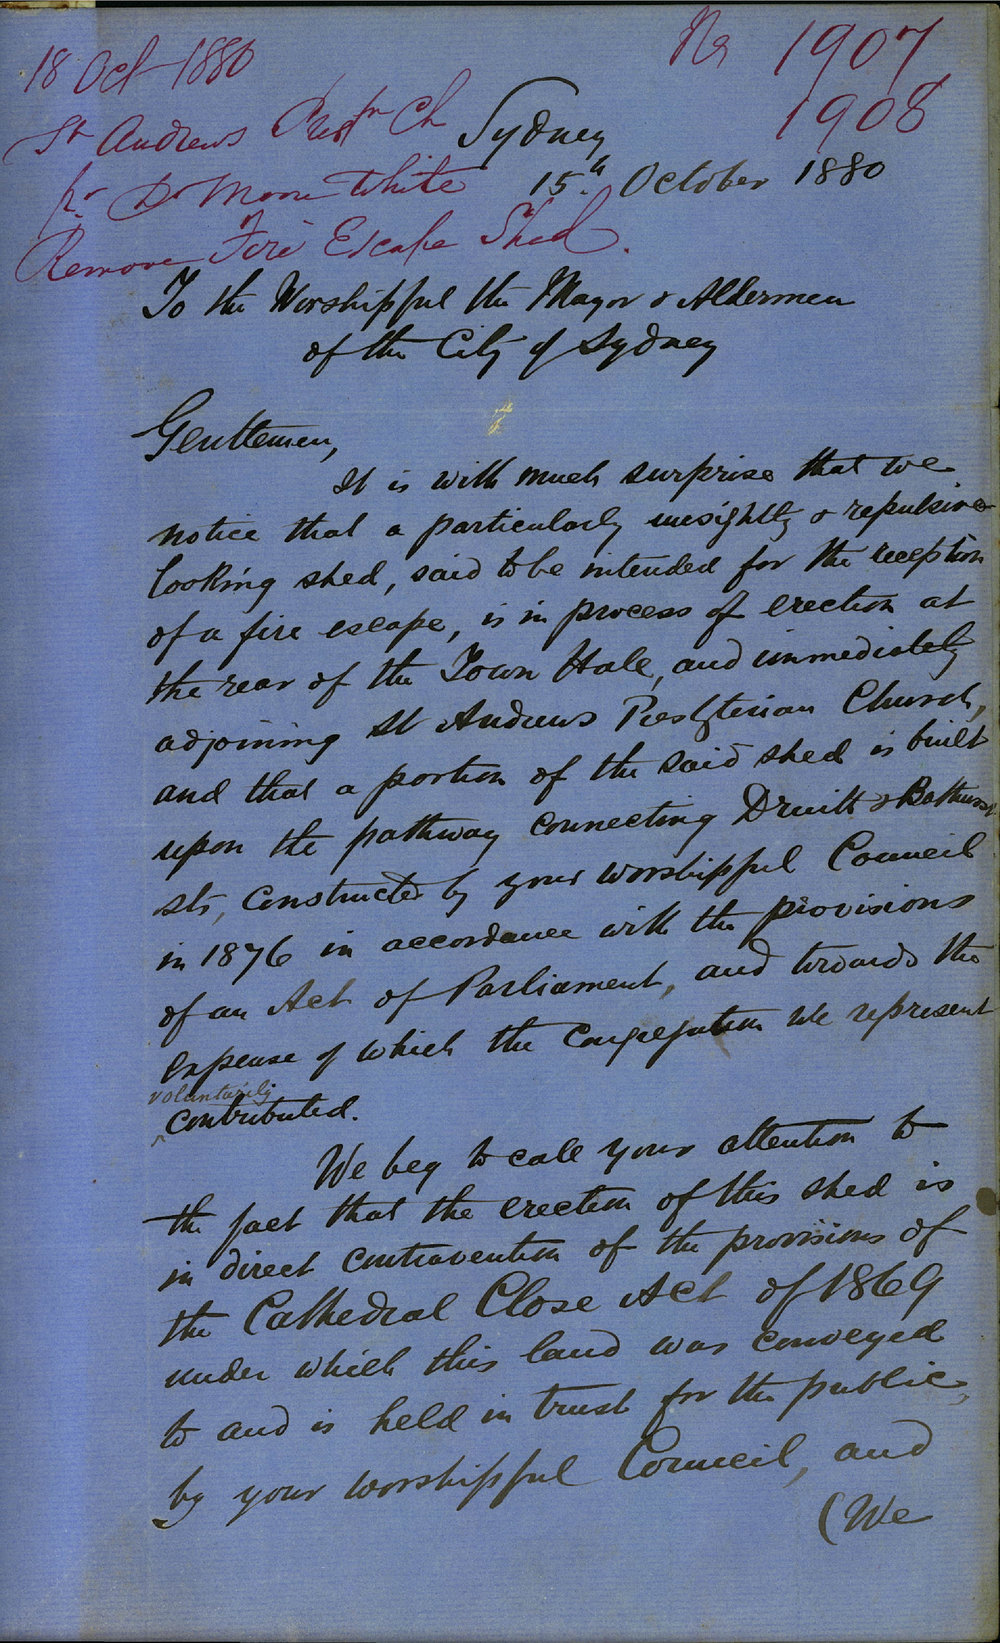 18 Oct 1880
No 1907
1908
St Andrews Presbn Ch
pr Dr Moore White
Remove Fire Escape Shed.
Sydney
15.th October 1880
To the Worshipful the Mayor & Aldermen
of the City of Sydney
Gentlemen,
It is with much surprise that we
notice that a particularly unsightly & repulsive
looking shed, said to be intended for the reception
of a fire escape, is in process of erection at
the rear of the Town Hall, and immediately
adjoining St Andrews Presbyterian Church,
and that a portion of the said shed is built
upon the pathway connecting Druitt & Bathurst
sts, constructed by your worshipful Council
in 1876 in accordance with the provisions
of an Act of Parliament, and towards the
expense of which the Congregation we represent
voluntarily
contributed.
We beg to call your attention to
the fact that the erection of this shed is
in direct contravention of the provisions of
the Cathedral Close Act of 1869
under which this land was conveyed
to and is held in trust for the public,
by your worshipful Council, and
(We